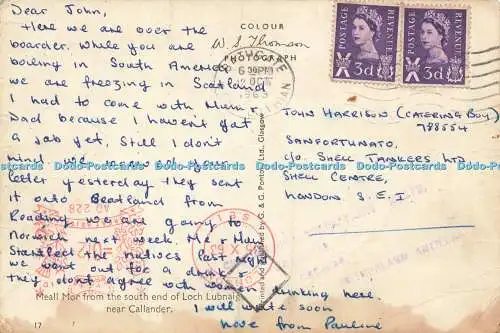 Dear John,
Here we are over the
boarder. While you are
boiling in South America
we are freezing in Scotland
I had to come with Mum &
Dad because I haven't got
a job yet. Still I don't
mind. We received your
letter yesterday they sent
it onto Scotland from
Reading we are going to
Norwich next week. Me & Mum
Startled the natives last night
we went out for a drink &
they don't agree with women drinking here.
I will write soon
love from Pauline
COLOUR
W. S. Thomson
PHOTOGRAPH
6 30PM
OCT
POSTAGE REVENUE
3d
POSTAGE REVENUE
3d
JOHN HARRISON (CATERING BOY)
788554
SANFORTUNATO,
C/O SHELL TANKERS LTD
SHELL CENTRE,
LONDON S.E.1
Printed and Published by G. & G. Ponton Ltd., Glasgow
Meall Mor from the south end of Loch Lubnaig
near Callander.
17
Dodo-Postcards Dodo-Postcards Dodo-Postcards Dodo-Postcards Dodo-Postcards